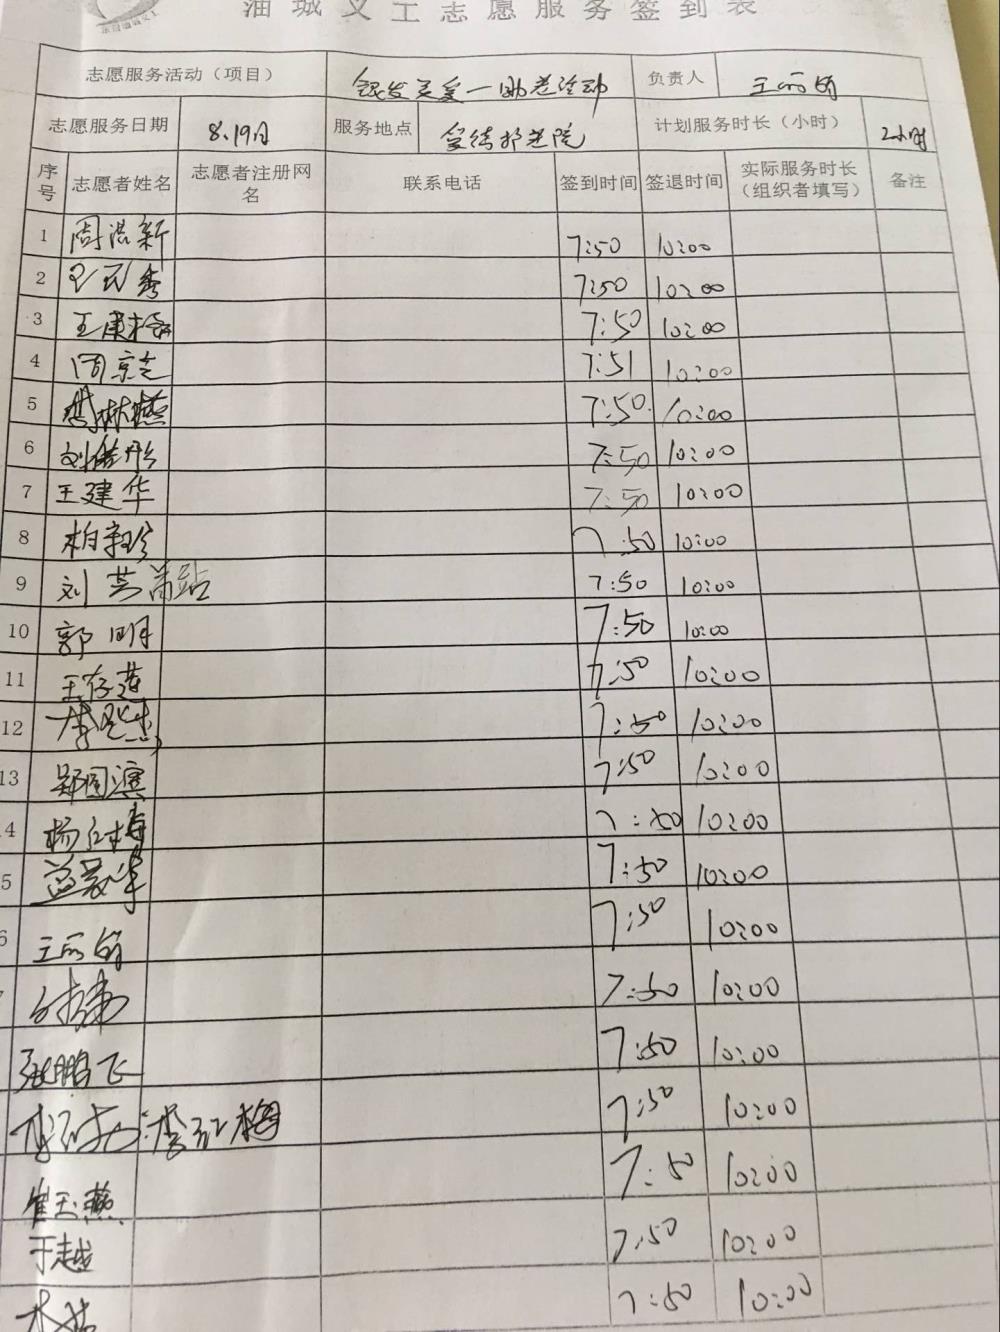 油城义工志愿服务签到表
志愿服务活动（项目） 助老活动 负责人 王
志愿服务日期 8.19日 服务地点 计划服务时长（小时） 2小时
序号 志愿者姓名 志愿者注册网名 联系电话 签到时间 签退时间 实际服务时长（组织者填写） 备注
1 周洪新 7:50 10:00
2 秀 7:50 10:00
3 王康梅 7:50 10:00
4 周京芝 7:51 10:00
5 李林燕 7:50 10:00
6 刘 彤 7:50 10:00
7 王建华 7:50 10:00
8 柏 珍 7:50 10:00
9 刘 7:50 10:00
10 郭明 7:50 10:00
11 王存莲 7:50 10:00
12 李 7:50 10:00
13 郑国滨 7:50 10:00
4 杨红梅 7:50 10:00
5 华 7:50 10:00
6 王 7:50 10:00
7:50 10:00
张鹏飞 7:50 10:00
李红梅 7:50 10:00
崔玉燕 7:50 10:00
于越 7:50 10:00
7:50 10:00